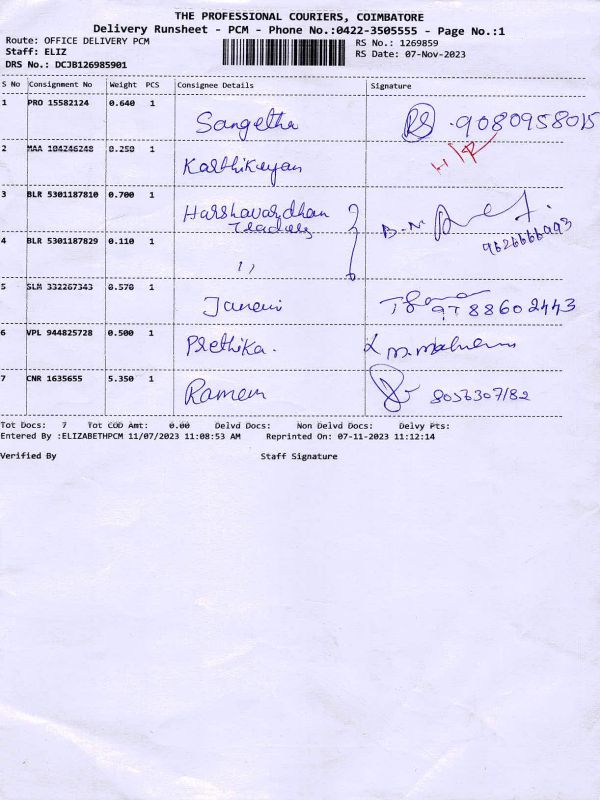 THE PROFESSIONAL COURIERS, COIMBATORE
Delivery Runsheet - PCM - Phone No.:0422-3505555 - Page No.:1
Route: OFFICE DELIVERY PCM
Staff: ELIZ
DRS No.: DCJB126985901
RS No.: 1269859
RS Date: 07-Nov-2023
S No Consignment No Weight PCS Consignee Details Signature
1 PRO 15582124 0.640 1 Sangetha RS 9080958015
2 MAA 104246248 0.250 1 Karthikeyan
3 BLR 5301187810 0.700 1 Harshavardhan
Traders B.N 9626666993
4 BLR 5301187829 0.110 1 ,,
5 SLM 332267343 0.570 1 Janani 9788602443
6 VPL 944825728 0.500 1 Prethika.
7 CNR 1635655 5.350 1 Ramem 8056307182
Tot Docs: 7 Tot COD Amt: 0.00 Delvd Docs: Non Delvd Docs: Delvy Pts:
Entered By :ELIZABETHPCM 11/07/2023 11:08:53 AM Reprinted On: 07-11-2023 11:12:14
Verified By Staff Signature